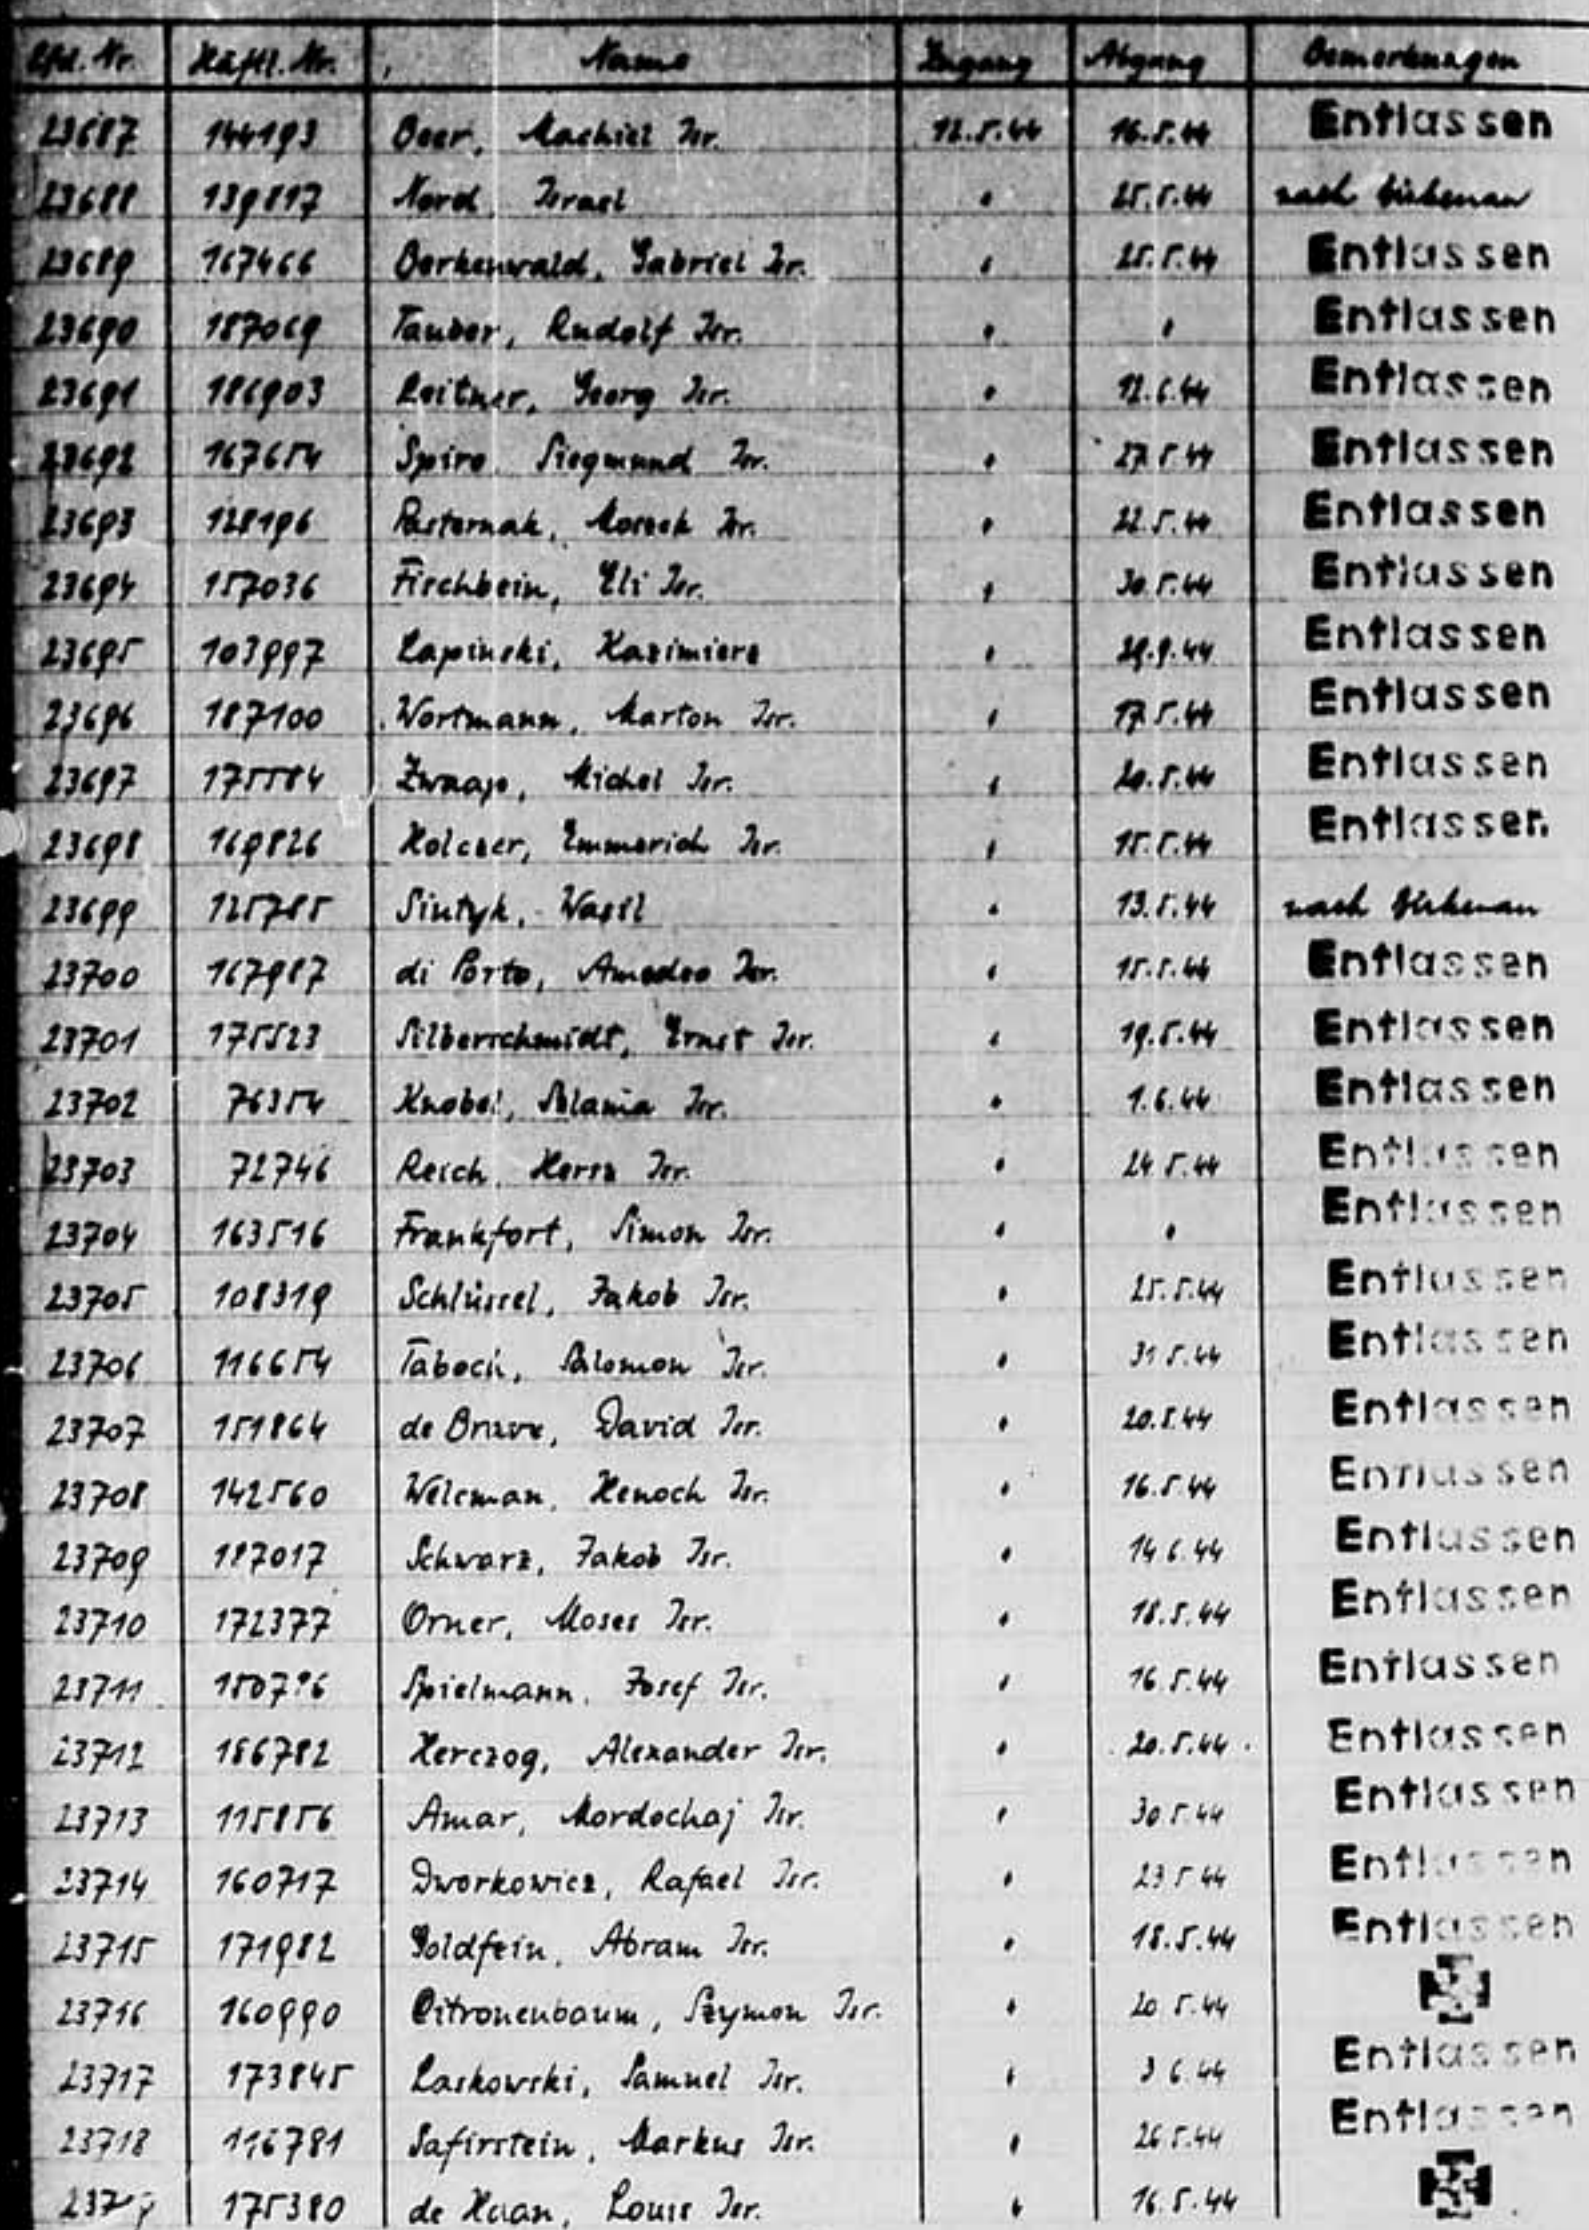 Lfd. Nr. Häftl. Nr. Name Zugang Abgang Bemerkungen
23687 144193 Beer, Machiel Isr. 12.5.44 16.5.44 Entlassen
23688 139817 Nord, Israel " 25.5.44 nach Birkenau
23689 167466 Berkenwald, Gabriel Isr. " 25.5.44 Entlassen
23690 187069 Tauber, Rudolf Isr. " " Entlassen
23691 186903 Leitner, Georg Isr. " 12.6.44 Entlassen
23692 167654 Spiro Siegmund Isr. " 27.5.44 Entlassen
23693 128196 Pasternak, Moszek Isr. " 22.5.44 Entlassen
23694 157036 Fischbein, Eli Isr. " 30.5.44 Entlassen
23695 103997 Lapinski, Kazimierz " 29.9.44 Entlassen
23696 187100 Wortmann, Marton Isr. " 17.5.44 Entlassen
23697 175584 Zwaap, Michel Isr. " 20.5.44 Entlassen
23698 169826 Holczer, Emmerich Isr. " 15.5.44 Entlassen
23699 125785 Sintyk, Wasil " 13.5.44 nach Birkenau
23700 167987 di Porto, Amadeo Isr. " 15.5.44 Entlassen
23701 175523 Silberschmidt, Ernst Isr. " 19.5.44 Entlassen
23702 76354 Knobel, Isr. " 1.6.44 Entlassen
23703 72746 Reich, Hersz Isr. " 24.5.44 Entlassen
23704 163516 Frankfort, Simon Isr. " " Entlassen
23705 108319 Schlüssel, Jakob Isr. " 25.5.44 Entlassen
23706 116654 Taboch, Salomon Isr. " 31.5.44 Entlassen
23707 151864 de Brave, David Isr. " 20.5.44 Entlassen
23708 142560 Welcman, Henoch Isr. " 16.5.44 Entlassen
23709 187017 Schwarz, Jakob Isr. " 14.6.44 Entlassen
23710 172377 Orner, Moses Isr. " 18.5.44 Entlassen
23711 Spielmann, Josef Isr. " 16.5.44 Entlassen
23712 186782 Herczog, Alexander Isr. " 20.5.44 Entlassen
23713 115856 Amar, Mordochaj Isr. " 30.5.44 Entlassen
23714 160717 Dworkowicz, Rafael Isr. " 23.5.44 Entlassen
23715 171982 Goldfein, Abram Isr. " 18.5.44 Entlassen
23716 160990 Citronenbaum, Szymon Isr. " 20.5.44
23717 173845 Laskowski, Samuel Isr. " 3.6.44 Entlassen
23718 116781 Safirstein, Markus Isr. " 26.5.44 Entlassen
175380 de Haan, Louis Isr. " 16.5.44